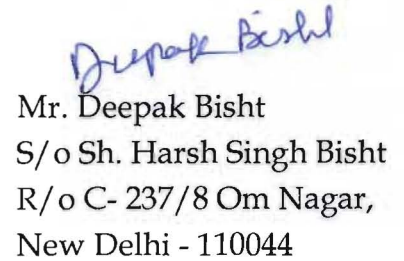 Deepak Bisht
Mr. Deepak Bisht
S/o Sh. Harsh Singh Bisht
R/o C- 237/8 Om Nagar,
New Delhi - 110044